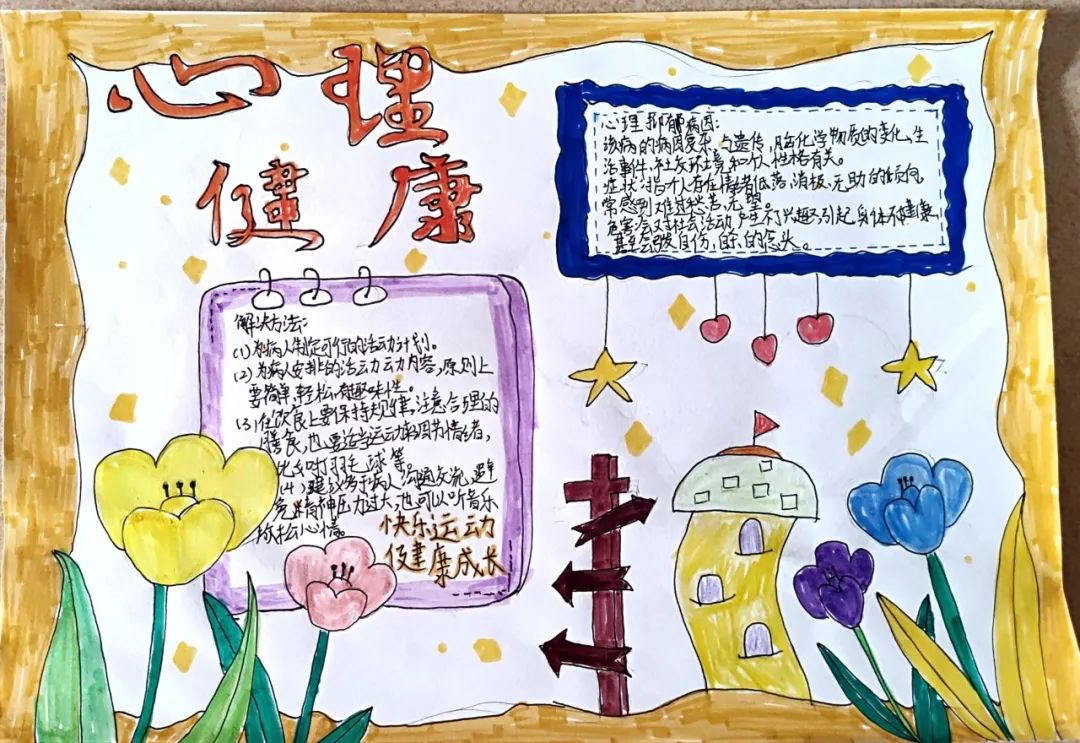 心理
健康
心理抑郁病因:
该病的病因复杂,与遗传,脑化学物质的变化,生
活事件,社交环境和个人性格有关。
症状:指个人存在情绪低落,消极,无助的倾向,
常感到难过,
危害:会对社会活动产生不兴趣,引起身体不健康,
甚至会自伤,自杀的念头。
解决方法:
(1)为病人制定可行的活动计划。
(2)为病人安排上的活动力动力内容,原则上
要简单,轻松,有趣味性。
(3)在饮食上要保持规律,注意合理的
膳食,也要适当运动来调节情绪,
比如打羽毛球等。
(4)建议多于病人沟通交流,避
免精神压力过大,也可以听音乐
放松心情。
快乐运动
健康成长